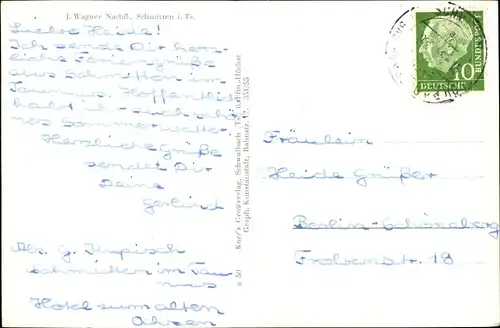 J. Wagner Nachfl., Schmitten i. Ts.
Liebe Heide!
Ich sende Dir herz-
liche Feriengrüße
aus Schmitten im
Taunus. Hoffentlich
habt ihr auch schö-
nes Sommerwetter.
Herzliche Grüße
sendet Dir
Deine
Gerlind
Abs. G.
Schmitten im Tau-
nus
Hotel zum alten
Ochsen
Knor's Großverlag, Schwalbach (Ts.) über Ffm.-Höchst
Graph. Kunstanstalt, Bahnstr. 12
o 50
DEUTSCHE BUNDESPOST
10
Fräulein
Heide Grüßer
Berlin-Schöneberg
Frobenstr. 18